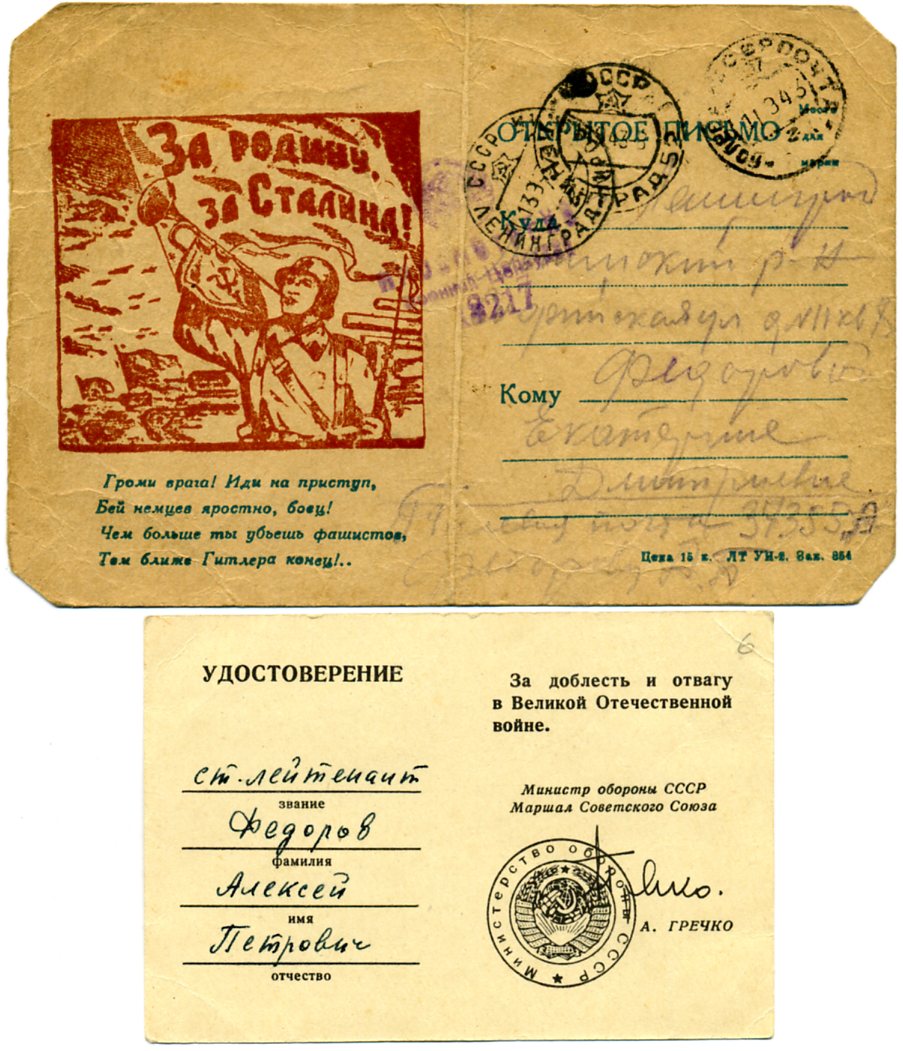 За родину,
за Сталина!
Громи врага! Иди на приступ,
Бей немцев яростно, боец!
Чем больше ты убьешь фашистов,
Тем ближе Гитлера конец!..
ОТКРЫТОЕ ПИСЬМО
Место
для
марки
СССР
ЛЕНИНГРАД
8217
Куда
Ленинград
р-н
Кому
Федоровой
Екатерине
Дмитриевне
почта
Цена 15 к. ЛТ УН-2. Зак. 854
6
УДОСТОВЕРЕНИЕ
ст. лейтенант
звание
Федоров
фамилия
Алексей
имя
Петрович
отчество
За доблесть и отвагу
в Великой Отечественной
войне.
Министр обороны СССР
Маршал Советского Союза
Министерство обороны СССР
А. ГРЕЧКО